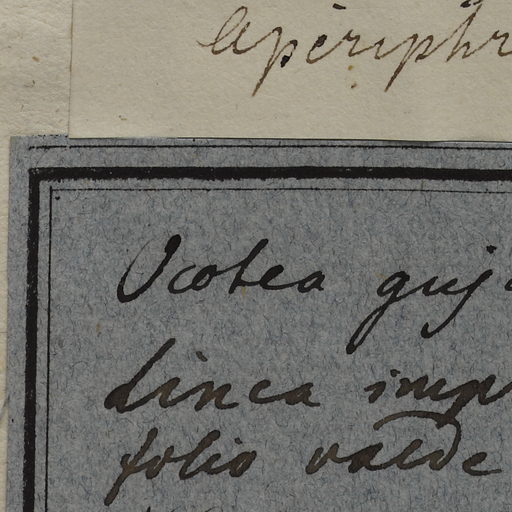 Aperiphr
Ocotea guj
linea imp
folio valde